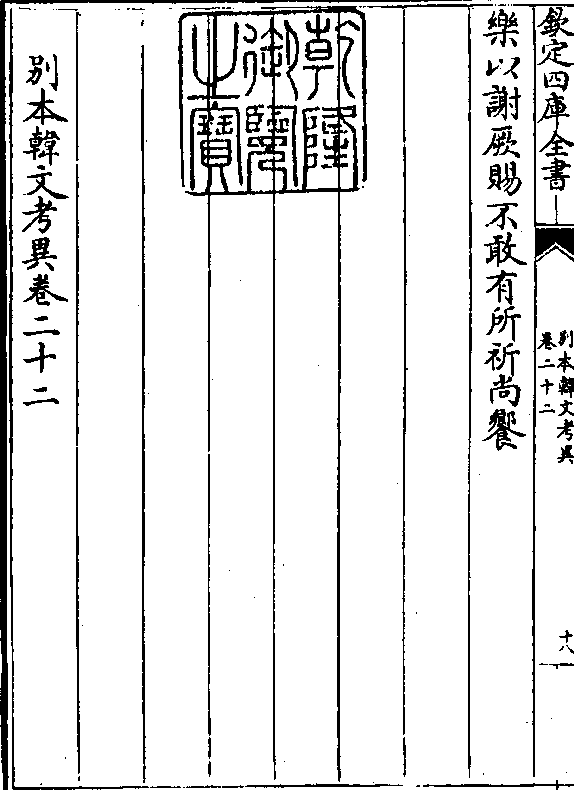 欽定四庫全書
別本韓文考異
卷二十二
十八
樂以謝厥賜不敢有所祈尚饗
乾隆御覽之寶
別本韓文考異卷二十二